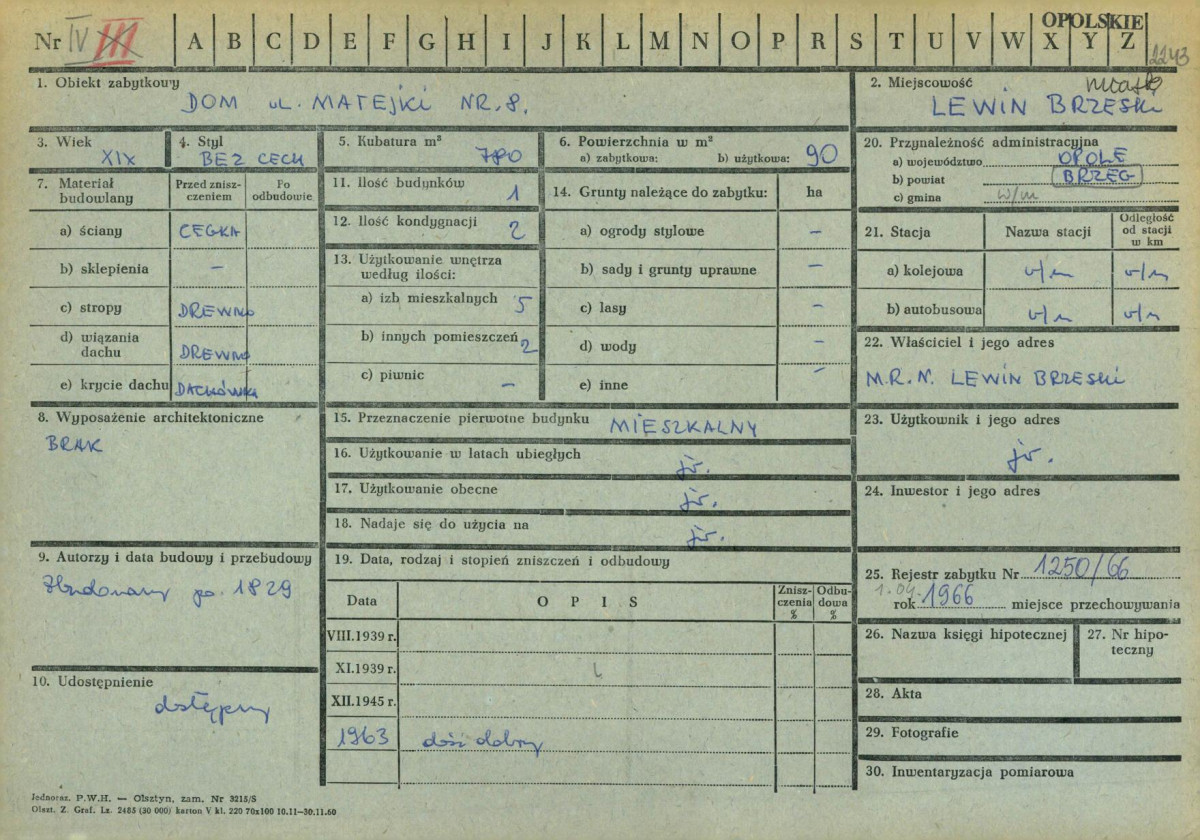 OPOLSKIE
Nr IV III A B C D E F G H I J K L M N O P R S T U V W X Y Z 2243
1. Obiekt zabytkowy
DOM ul. MATEJKI NR. 8.
2. Miejscowość miasto
LEWIN BRZESKI
3. Wiek
XIX
4. Styl
BEZ CECH
5. Kubatura m³
780
6. Powierzchnia w m²
a) zabytkowa: b) użytkowa: 90
20. Przynależność administracyjna
a) województwo OPOLE
b) powiat BRZEG
c) gmina w/m
7. Materiał budowlany
Przed zniszczeniem
Po odbudowie
a) ściany CEGŁA
b) sklepienia –
c) stropy DREWNO
d) wiązania dachu DREWNO
e) krycie dachu DACHÓWKA
11. Ilość budynków 1
12. Ilość kondygnacji 2
13. Użytkowanie wnętrza
według ilości:
a) izb mieszkalnych 5
b) innych pomieszczeń 2
c) piwnic –
14. Grunty należące do zabytku: ha
a) ogrody stylowe –
b) sady i grunty uprawne –
c) lasy –
d) wody –
e) inne –
21. Stacja
Nazwa stacji
Odległość od stacji w km
a) kolejowa v/m v/m
b) autobusowa v/m v/m
22. Właściciel i jego adres
M.R.N. LEWIN BRZESKI
8. Wyposażenie architektoniczne
BRAK
15. Przeznaczenie pierwotne budynku MIESZKALNY
16. Użytkowanie w latach ubiegłych jw.
17. Użytkowanie obecne jw.
18. Nadaje się do użycia na jw.
23. Użytkownik i jego adres
jw.
24. Inwestor i jego adres
9. Autorzy i data budowy i przebudowy
Zbudowany po 1829
19. Data, rodzaj i stopień zniszczeń i odbudowy
Data OPIS Zniszczenia % Odbudowa %
VIII.1939 r.
XI.1939 r.
XII.1945 r.
1963 dość dobry
25. Rejestr zabytku Nr 1250/66
1.04.
rok 1966 miejsce przechowywania
26. Nazwa księgi hipotecznej
27. Nr hipoteczny
10. Udostępnienie
dostępny
28. Akta
29. Fotografie
30. Inwentaryzacja pomiarowa
Jednoraz. P.W.H. — Olsztyn, zam. Nr 3215/S
Olszt. Z. Graf. Lz. 2485 (30 000) karton V kl. 220 70x100 10.11—30.11.60